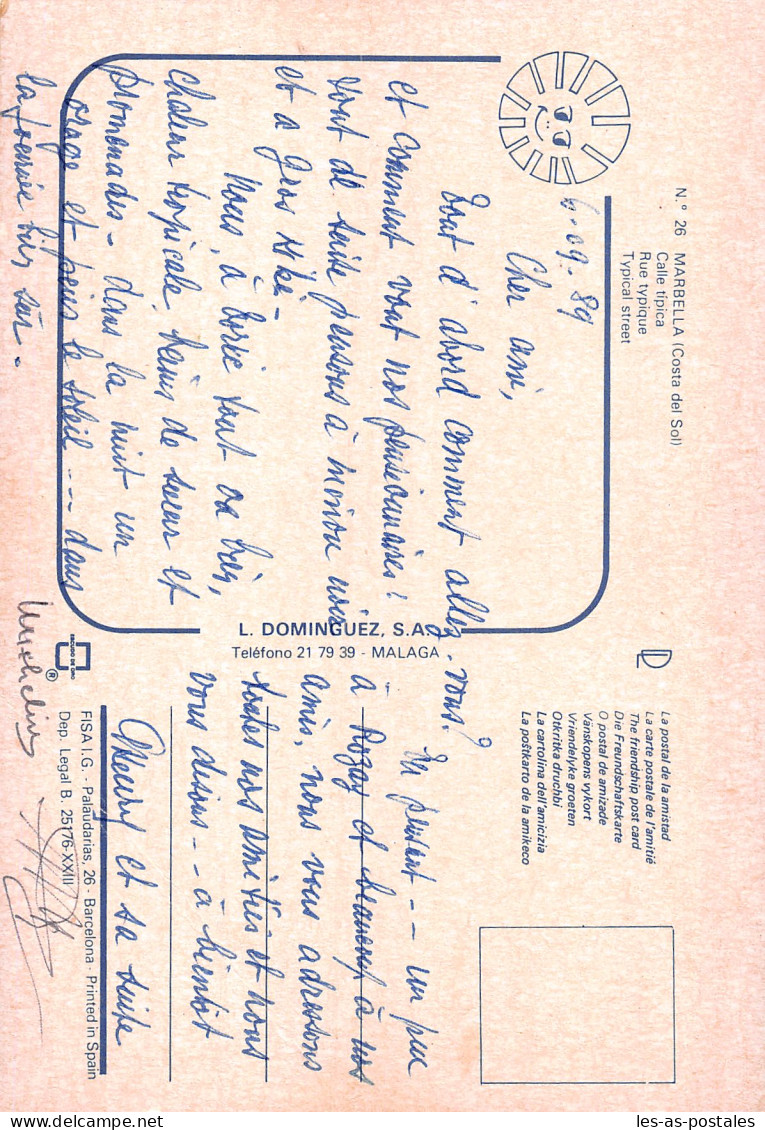 N.° 26 MARBELLA (Costa del Sol)
Calle típica
Rue typique
Typical street
6-09-89
Cher ami,
Tout d'abord comment allez-vous?
et comment vont nos pensionnaires!
tout de suite pensons à
et a Gros
Nous, à tout va bien,
chaleur tropicale, bains de et
promenades - dans la nuit un
orage et puis le soleil --- dans
la bien sûr.
L. DOMINGUEZ, S.A.
Teléfono 21 79 39 - MALAGA
En pensant -- un peu
a Rozay et beaucoup à nos
amis, nous vous adressons
toutes nos amitiés et nous
vous disons -- à bientôt
et sa suite
La postal de la amistad
La carte postale de l'amitié
The friendship post card
Die Freundschaftskarte
O postal de amizade
Vänskopens vykort
Vriendelyke groeten
Otkritka druchbi
La cartolina dell'amicizia
La poŝtkarto de la amikeco
ESCUDO DE ORO
®
FISA I.G. - Palaudarias, 26 - Barcelona - Printed in Spain
Dep. Legal B. 25176-XXIII
les-as-postales